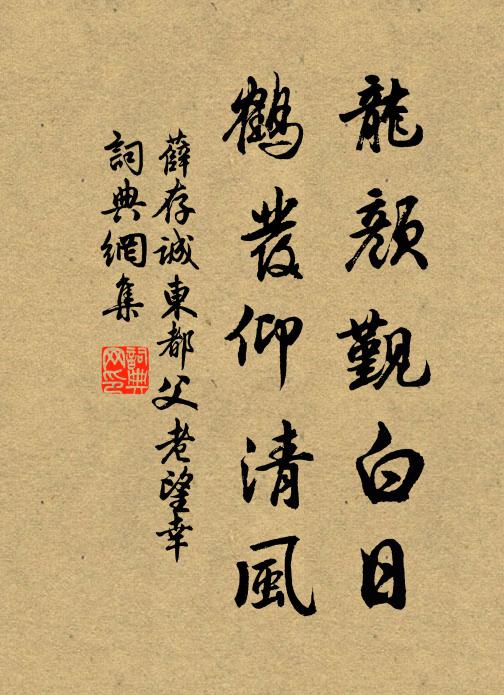 龍顏覲白日
鶴髮仰清風
薛存誠東都父老望幸
詞典網集
詞典网印